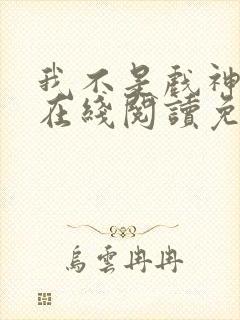 我不是戏神
在綫閱讀免
烏雲冉冉